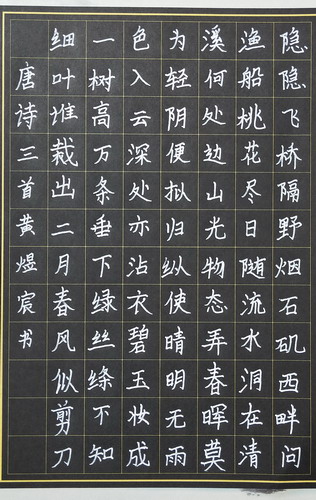 隐隐飞桥隔野烟石矶西畔问
渔船桃花尽日随流水洞在清
溪何处边山光物态弄春晖莫
为轻阴便拟归纵使晴明无雨
色入云深处亦沾衣碧玉妆成
一树高万条垂下绿丝绦不知
细叶谁裁出二月春风似剪刀
唐诗三首黄煜宸书